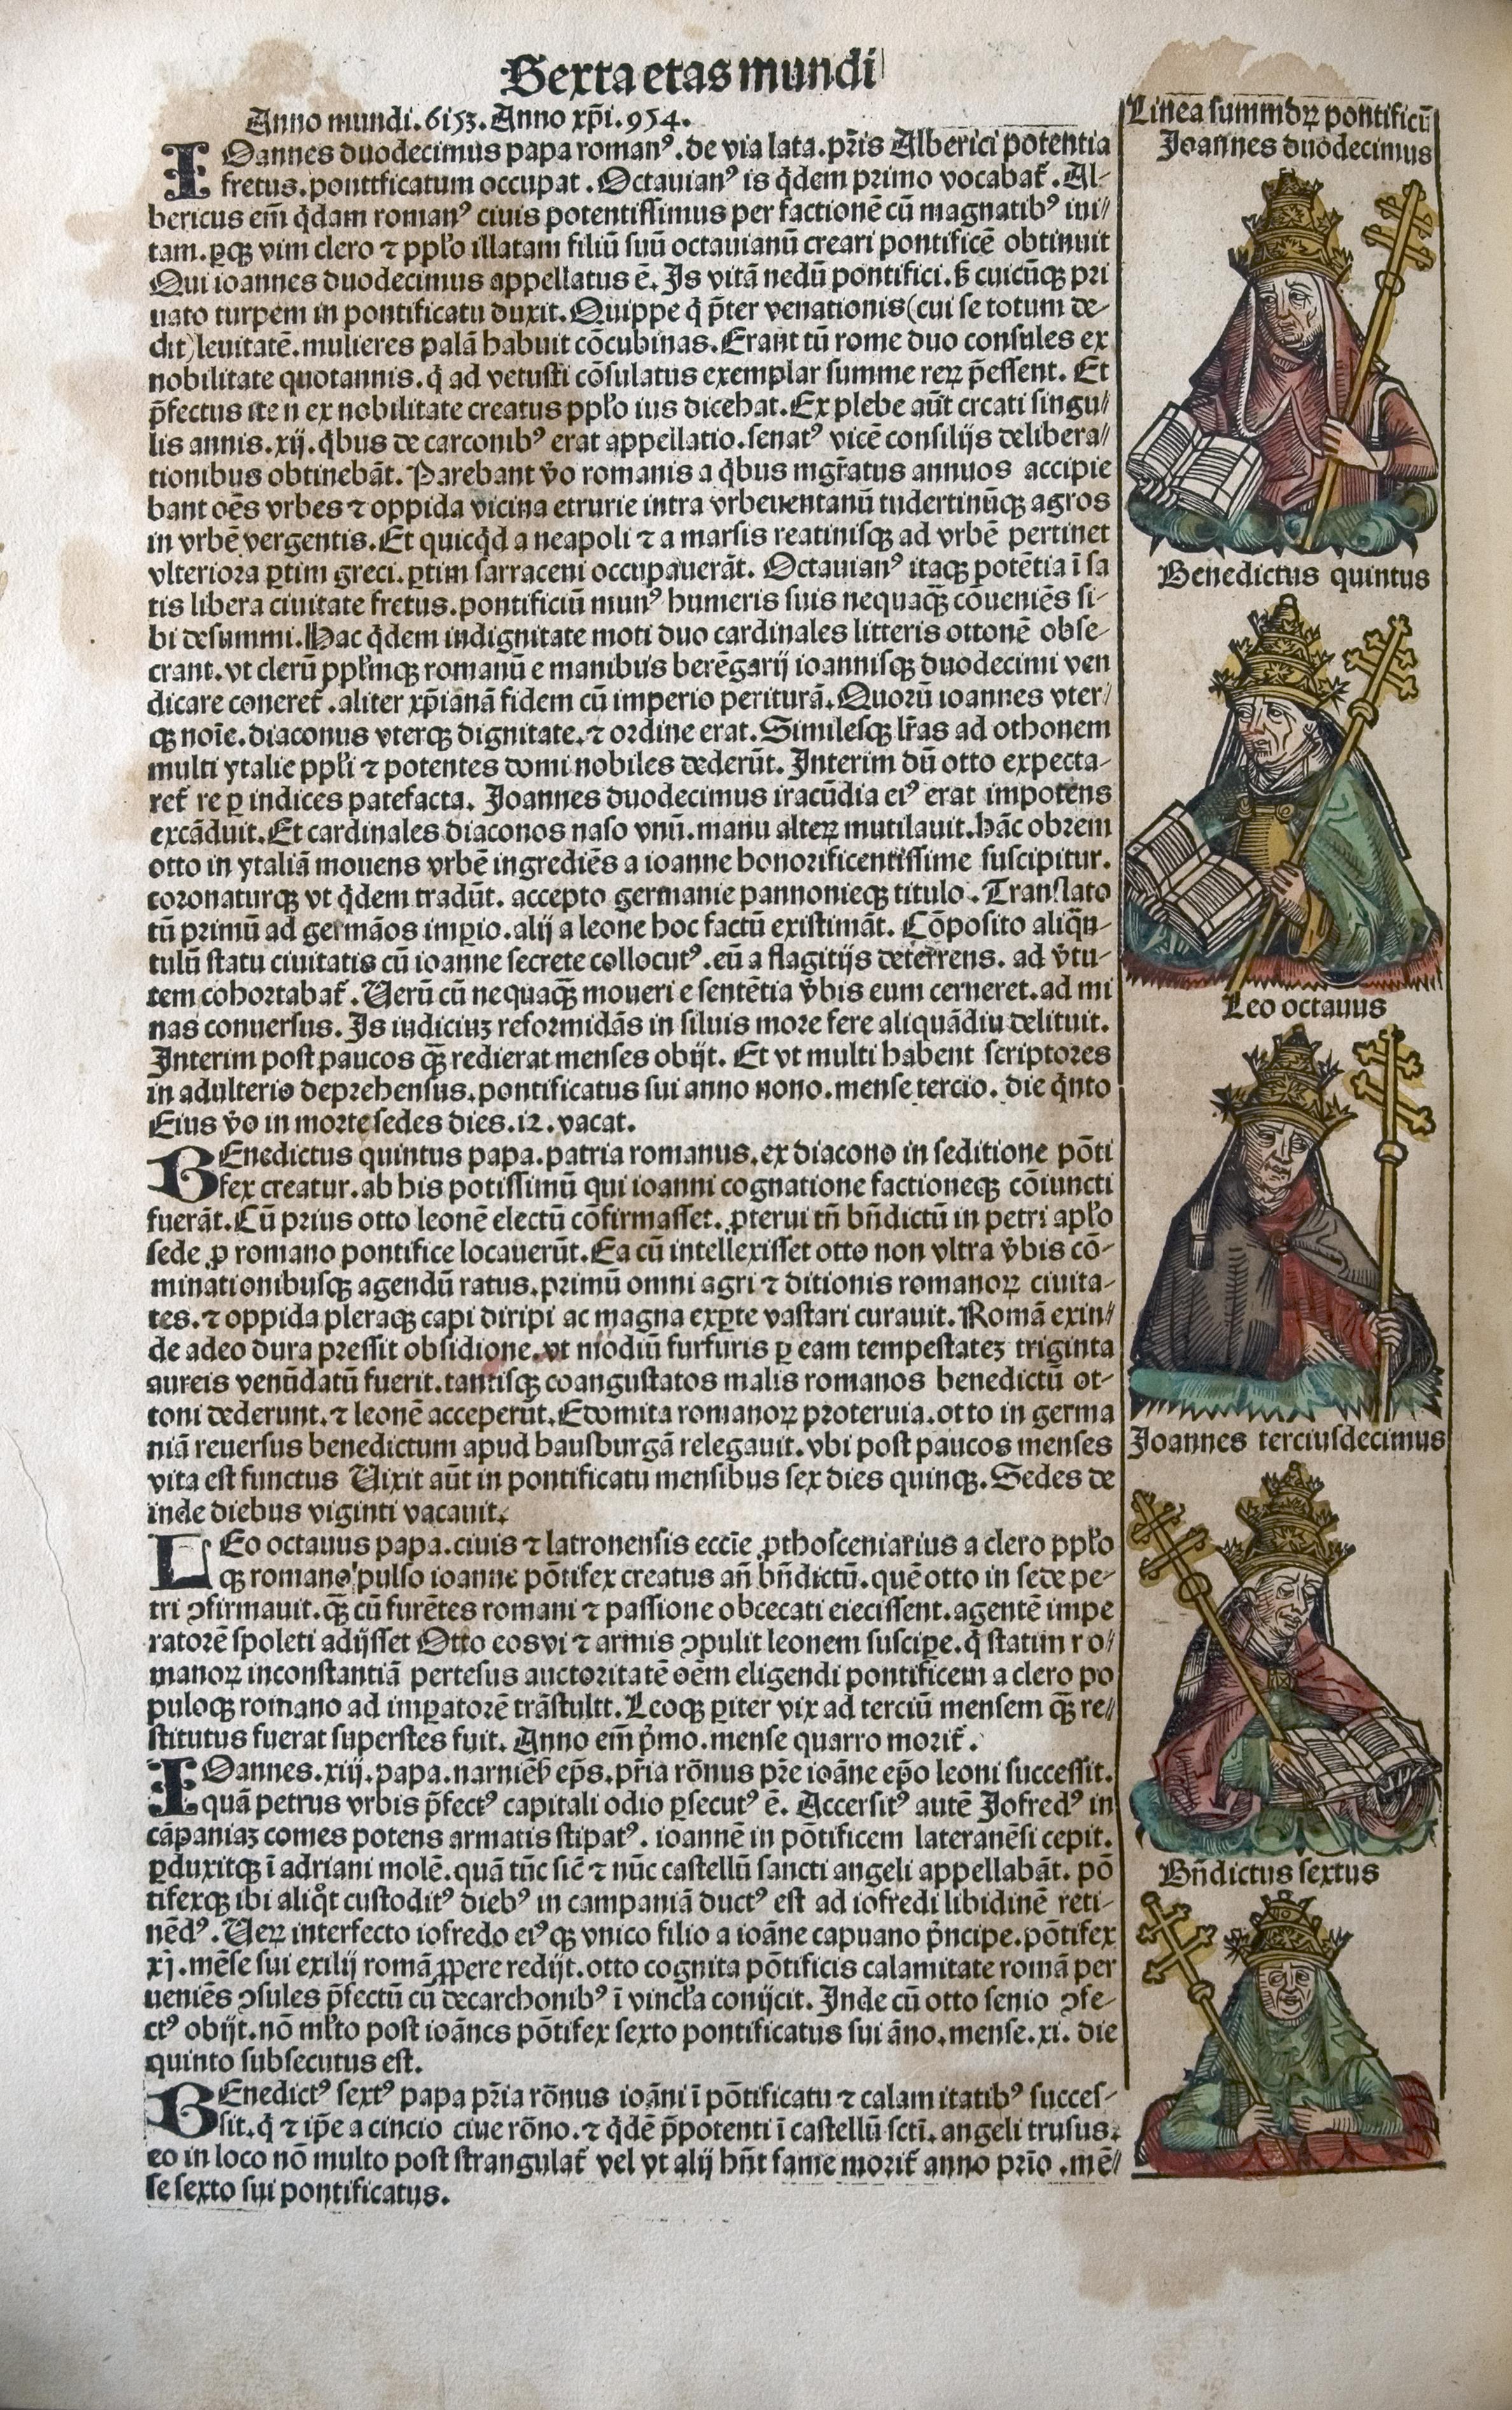 Sexta etas mundi
Anno mundi.6153.Anno xp̄i.954.
IOannes duodecimus papa romanꝰ.de via lata.pr̄is Alberici potentia
fretus.pontificatum occupat.Octauianꝰ is q̇dem primo vocabat̄.Al-
bericus em̄ q̇dam romanꝰ ciuis potentissimus per factionē cū magnatibꝰ ini/
tam.ꝑqꝫ vim clero ⁊ ppl'o illatam filiū suū octauianū creari pontificē obtinuit
Qui ioannes duodecimus appellatus ē.Is vitā nedū pontifici.ß cuicūqꝫ pri
uato turpem in pontificatu duxit.Quippe q̇ p̄ter venationis(cui se totum de-
dit)leuitatē.mulieres palā habuit cōcubinas.Erant tū rome duo consules ex
nobilitate quotannis.q̇ ad vetusti cōsulatus exemplar summe reꝝ p̄essent. Et
p̄fectus iteꝫ ex nobilitate creatus ppl'o ius dicebat.Ex plebe aūt crcati singu/
lis annis.xij.q̇bus de carconibꝰ erat appellatio.senatꝰ vicē consilijs delibera/
tionibus obtinebāt.Parebant v̇o romanis a q̇bus mgr̄atus annuos accipie
bant oēs vrbes ⁊ oppida vicina etrurie intra vrbeuentanū tudertinūqꝫ agros
in vrbē vergentis.Et quicq̇d a neapoli ⁊ a marsis reatinisqꝫ ad vrbē pertinet
vlteriora ꝑtim greci.ꝑtim sarraceni occupauerāt. Octauianꝰ itaqꝫ potētia ī sa
tis libera ciuitate fretus.pontificiū munꝰ humeris suis nequaqꝫ̄ cōueniēs si-
bi desummi.Hac q̇dem indignitate moti duo cardinales litteris ottonē obse-
crant.vt clerū ppl'mqꝫ romanū e manibus berēgarij ioannisqꝫ duodecimi ven
dicare coneret̄.aliter xp̄ianā fidem cū imperio periturā.Quorū ioannes vter/
qꝫ noīe.diaconus vterqꝫ dignitate.⁊ ordine erat.Similesqꝫ lr̄as ad othonem
multi ytalie ppl'i ⁊ potentes domi nobiles dederūt. Interim dū otto expecta-
ret̄ re ꝑ indices patefacta. Joannes duodecimus iracūdia eiꝰ erat impotens
excāduit.Et cardinales diaconos naso vnū.manu alteꝝ mutilauit.hāc obrem
otto in ytaliā mouens vrbē ingrediēs a ioanne honorificentissime suscipitur.
coronaturqꝫ vt q̇dem tradūt. accepto germanie pannonieqꝫ titulo. Translato
tū primū ad germāos imꝑio.alij a leone hoc factū existimāt. Cōposito aliqn̄-
tulū statu ciuitatis cū ioanne secrete collocutꝰ.eū a flagitijs deterrens. ad v̇tu-
tem cohortabat̄.Verū cū nequaqꝫ̄ moueri e sentētia v̇bis eum cerneret.ad mi
nas conuersus. Is iudiciuꝫ reformidās in siluis more fere aliquādiu delituit.
Interim post paucos qꝫ̄ redierat menses obijt. Et vt multi habent scriptores
in adulterio deprehensus.pontificatus sui anno nono.mense tercio. die q̇nto
Eius v̇o in morte sedes dies.12.vacat.
BEnedictus quintus papa.patria romanus.ex diacono in seditione pōti
fex creatur.ab his potissimū qui ioanni cognatione factioneqꝫ cōiuncti
fuerāt.Cū prius otto leonē electū cōfirmasset.ꝓterui tn̄ bn̄dictū in petri apl'o
sede ꝓ romano pontifice locauerūt.Ea cū intellexisset otto non vltra v̇bis cō-
minationibusqꝫ agendū ratus.primū omni agri ⁊ ditionis romanoꝝ ciuita-
tes.⁊ oppida pleraqꝫ capi diripi ac magna exꝑte vastari curauit.Romā exin/
de adeo dura pressit obsidione.vt modiū furfuris ꝑ eam tempestateꝫ triginta
aureis venūdatū fuerit.tantisqꝫ coangustatos malis romanos benedictū ot-
toni dederunt.⁊ leonē acceperūt.Edomita romanoꝝ proteruia.otto in germa
niā reuersus benedictum apud hausburgā relegauit.vbi post paucos menses
vita est functus Vixit aūt in pontificatu mensibus sex dies quinqꝫ.Sedes de
inde diebus viginti vacauit.
LEo octauus papa.ciuis ⁊ latronensis eccīe ꝓthosceniarius a clero ppl'o
qꝫ romano pulso ioanne pōtifex creatus an̄ bn̄dictū.quē otto in sede pe-
tri ꝯfirmauit.qꝫ̄ cū furētes romani ⁊ passione obcecati eiecissent.agentē impe
ratorē spoleti adijsset Otto eos vi ⁊ armis ꝯpulit leonem susciꝑe.q̇ statim ro/
manoꝝ inconstantiā pertesus auctoritatē oēm eligendi pontificem a clero po
puloqꝫ romano ad imꝑatorē trāstultt.Leoqꝫ ꝑiter vix ad terciū mensem qꝫ̄ re/
stitutus fuerat superstes fuit. Anno em̄ ṗmo.mense quarro morit̄.
IOannes.xiij.papa.narniēß ep̄s.pr̄ia rōnus pr̄e ioāne ep̄o leoni successit.
quā petrus vrbis p̄fectꝰ capitali odio ꝑsecutꝰ ē. Accersitꝰ autē Jofredꝰ in
cāpaniaꝫ comes potens armatis stipatꝰ. ioannē in pōtificem lateranēsi cepit.
ꝑduxitqꝫ ī adriani molē.quā tūc sic̄ ⁊ nūc castellū sancti angeli appellabāt. pō
tifexqꝫ ibi aliq̇t custoditꝰ diebꝰ in campaniā ductꝰ est ad iofredi libidinē reti-
nēdꝰ.Veꝝ interfecto iofredo eiꝰqꝫ vnico filio a ioāne capuano ṗncipe.pōtifex
xj.mēse sui exilij romā ꝓpere redijt.otto cognita pōtificis calamitate romā per
ueniēs ꝯsules p̄fectū cū decarchonibꝰ ī vincl'a conijcit. Inde cū otto senio ꝯfe-
ctꝰ obijt.nō ml'to post ioāncs pōtifex sexto pontificatus sui āno.mense.xi. die
quinto subsecutus est.
BEnedictꝰ sextꝰ papa pr̄ia rōnus ioāni ī pōtificatu ⁊ calamitatibꝰ succes-
sit.q̇ ⁊ ip̄e a cincio ciue rōno.⁊ q̇dē p̄potenti ī castellū scti.angeli trusus.
eo in loco nō multo post strangulat̄ vel vt alij hn̄t fame morit̄ anno prīo.mē/
se sexto sui pontificatus.
Linea summoꝝ pontificū
Joannes duodecimus
Benedictus quintus
Leo octauus
Joannes terciusdecimus
Bn̄dictus sextus